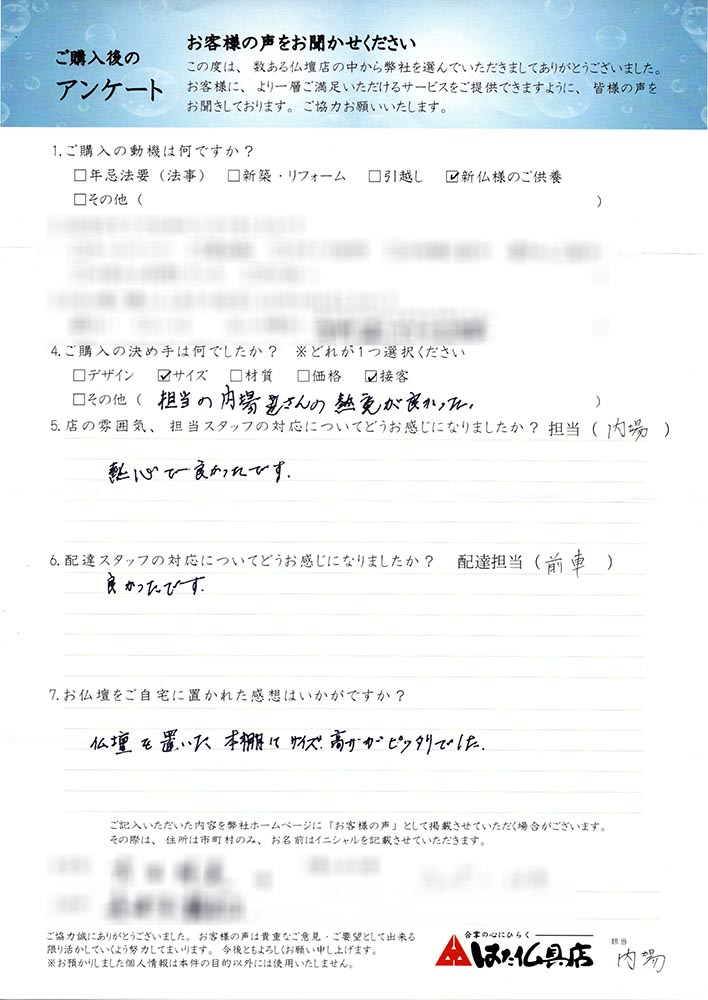 ご購入後の
アンケート
お客様の声をお聞かせください
この度は、数ある仏壇店の中から弊社を選んでいただきましてありがとうございました。
お客様に、より一層ご満足いただけるサービスをご提供できますように、皆様の声を
お聞きしております。ご協力お願いいたします。
1.ご購入の動機は何ですか？
□年忌法要（法事） □新築・リフォーム □引越し ☑新仏様のご供養
□その他（ ）
4.ご購入の決め手は何でしたか？ ※どれか1つ選択ください
□デザイン ☑サイズ □材質 □価格 ☑接客
□その他（ 担当の内場さんの熱意が良かった。 ）
5.店の雰囲気、担当スタッフの対応についてどうお感じになりましたか？ 担当（ 内場 ）
熱心で良かったです.
6.配達スタッフの対応についてどうお感じになりましたか？ 配達担当（前車 ）
良かったです.
7.お仏壇をご自宅に置かれた感想はいかがですか？
仏壇を置いた本棚にサイズ.高さがピッタリでした.
ご記入いただいた内容を弊社ホームページに「お客様の声」として掲載させていただく場合がございます。
その際は、住所は市町村のみ、お名前はイニシャルを記載させていただきます。
ご協力誠にありがとうございました。お客様の声は貴重なご意見・ご要望として出来る
限り活かしていくよう努力してまいります。今後ともよろしくお願い申し上げます。
※お預かりしました個人情報は本件の目的以外には使用いたしません。
合掌の心にひらく
はた仏具店
担当
内場